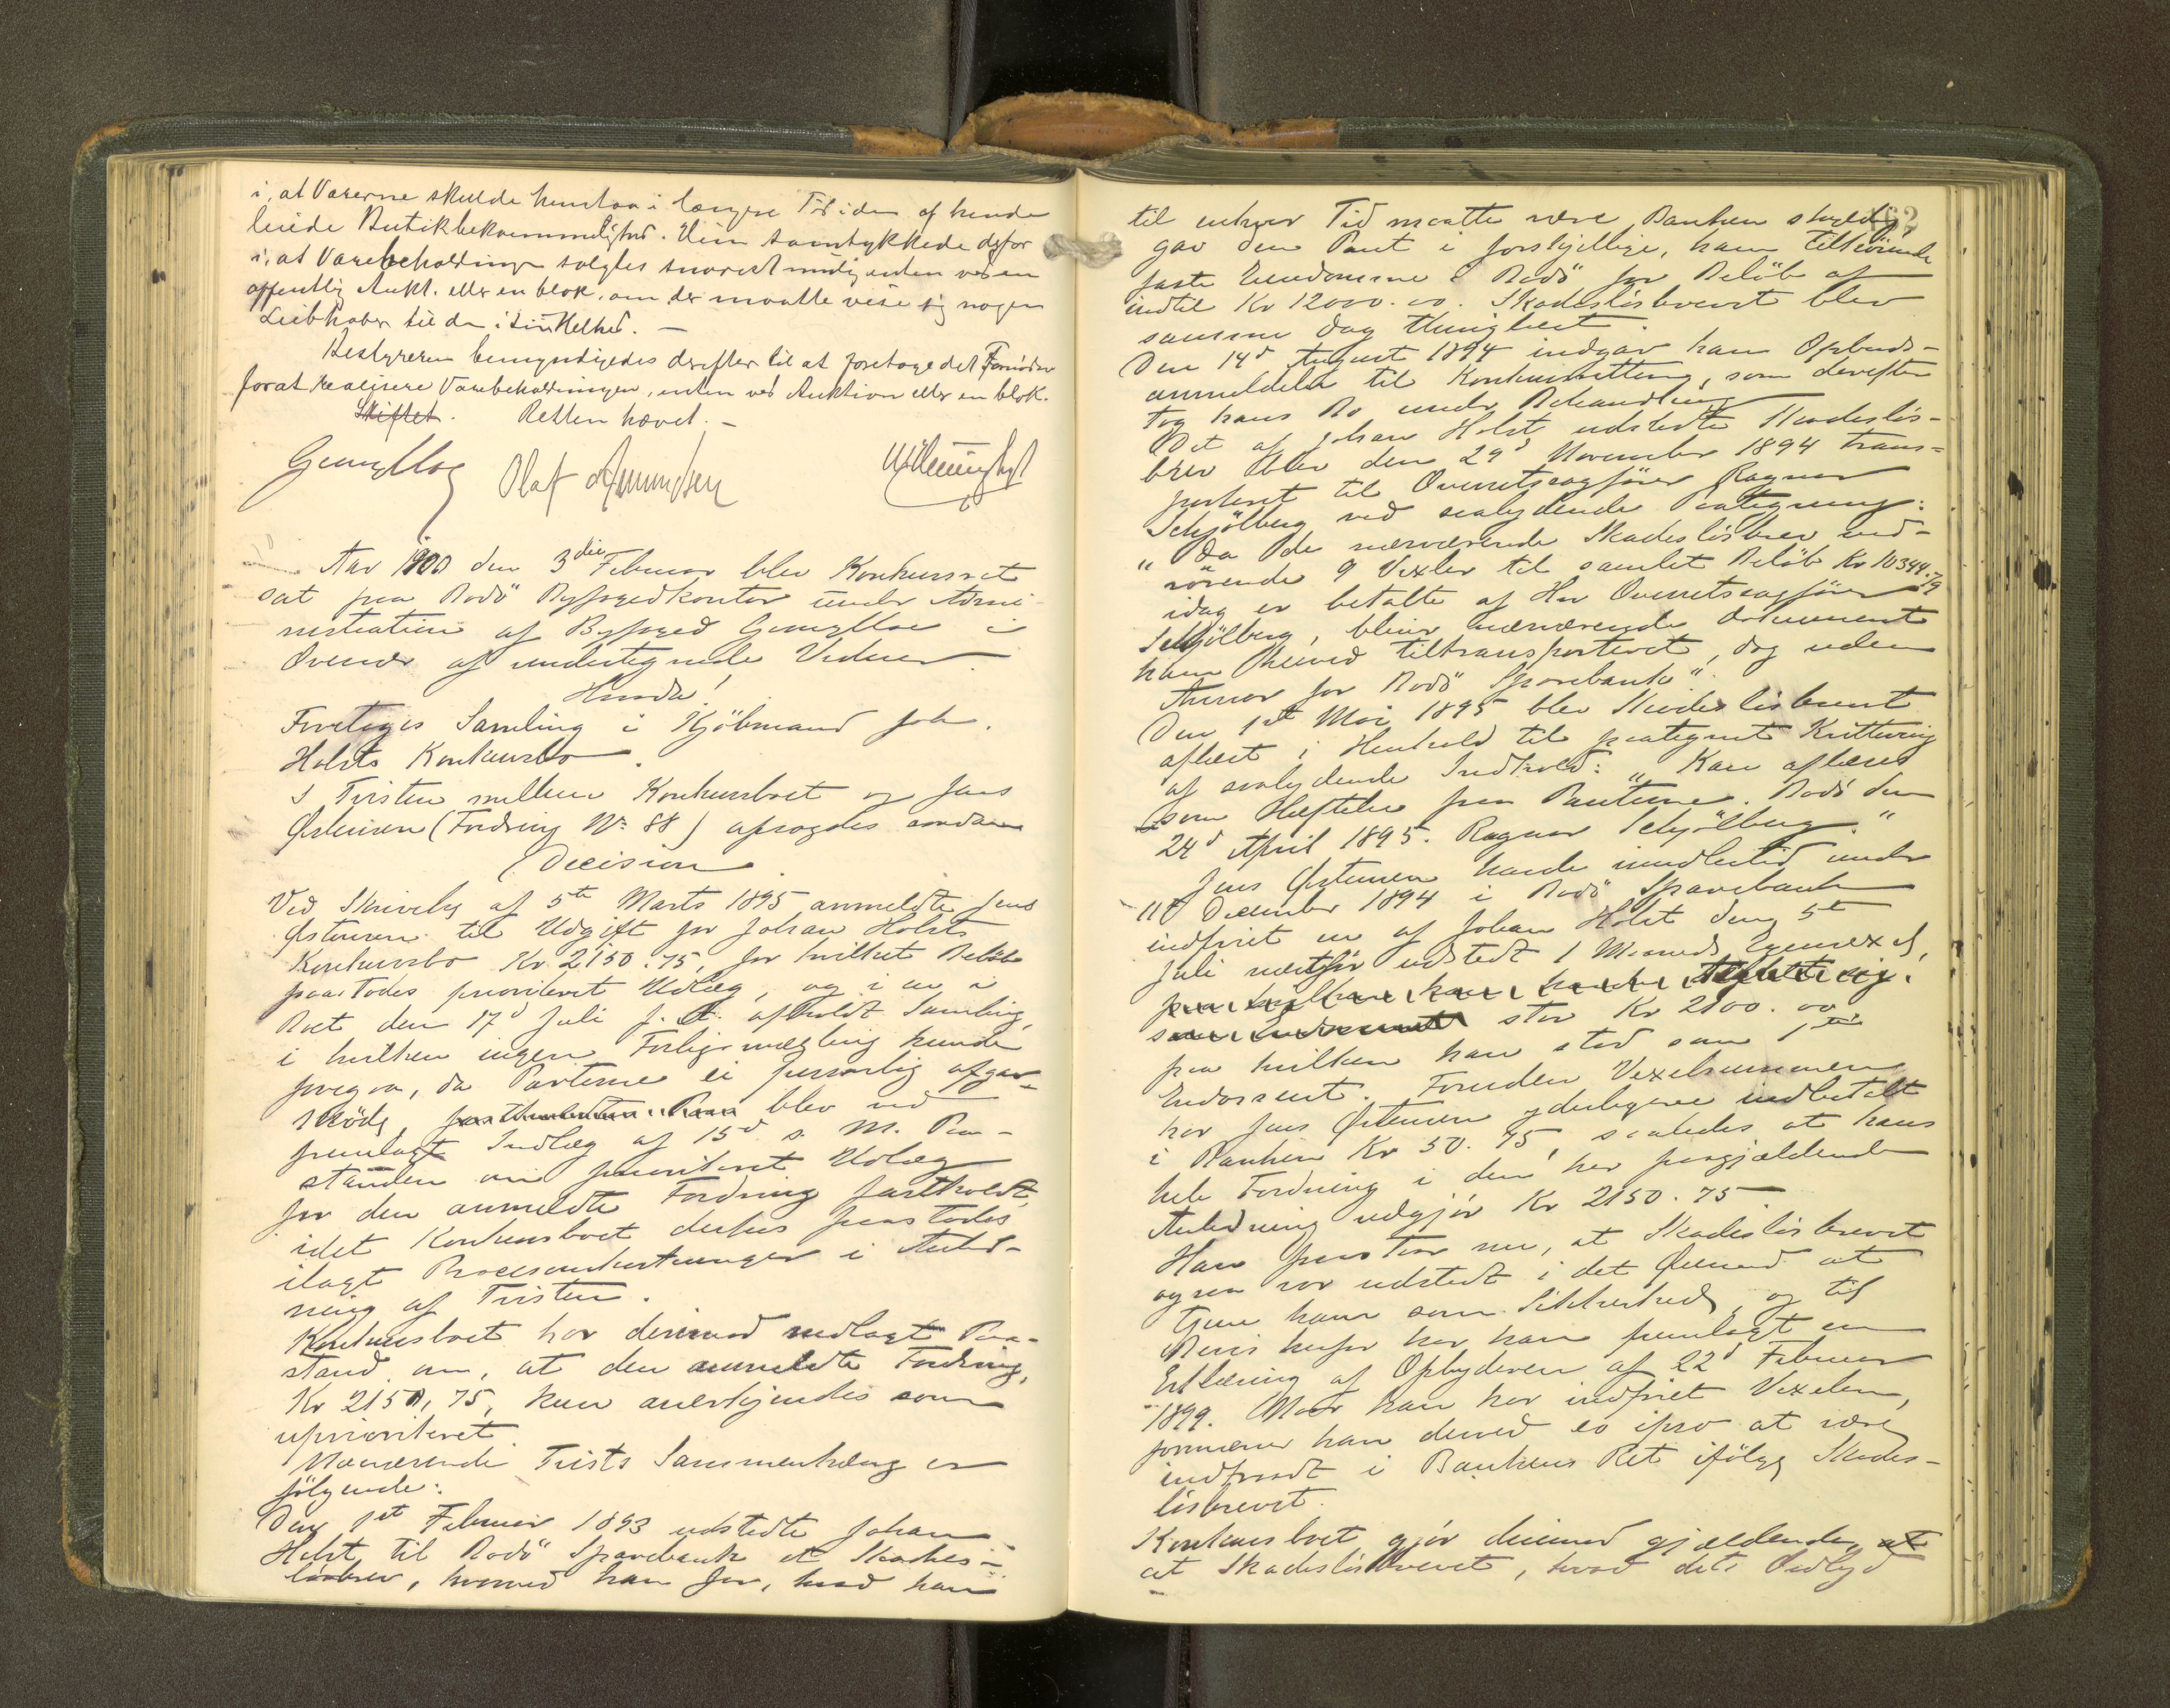 i, at Varerne skulde henstaa i længre Tid i den af hende
leiede Butikbekvemmelighed. Hun samtykkede derfor
i, at Varebeholdningen solgtes snarest mulig enten ved en
offentlig Aukt. eller en blok, om der maatte vise sig nogen
Liebhaber til den i sin Helhed. —
Bestyreren bemyndigedes derefter til at foretage det Fornødne
for at realisere Varebeholdningen, enten ved Auktion eller en blok.
Skiftet. Retten hævet. —
Olaf Amundsen
Aar 1900 den 3die Februar blev Konkursret
sat paa Bodö Byfogedkontor under Admi-
nistration af Byfoged i
Overvær af undertegnede Vidner.
Hvorda!
Foretoges Samling i Kjöbmand Joh.
Holsts Konkursbo.
I Tvisten mellem Konkursboet og Jens
Østensen (Fordring No 88) afsagdes saadan
Decision
Ved Skrivelse af 5te Marts 1895 anmeldte Jens
Østensen til Udgift for Johan Holsts
Konkursbo Kr 2150.75, for hvilket Beløb
paastodes prioriteret Udlæg, og i en i
Boet den 17d Juli f. A. afholdt Samling,
i hvilken ingen Forligsmægling kunde
foregaa, da Parterne ei personlig afgav
Möde, blev ved
fremlagt Indlæg af 15d s. M. Paa-
standen om prioriteret Udlæg
for den anmeldte Fordring fastholdt,
idet Konkursboet derhos paastodes
ilagt Procesomkostninger i Anled-
ning af Tvisten.
Konkursboet har derimod nedlagt Paa-
stand om, at den anmeldte Fordring,
Kr 2150,75, kun anerkjendes som
uprioriteret.
Nærværende Tvists Sammenhæng er
fölgende:
Den 1st Februar 1893 udstedte Johan
Holst til Bodö Sparebank et Skades-
lösbrev, hvorved han for, hvad han
62
til enhver Tid maatte være Banken skyldig,
gav den Pant i forskjellige, ham tilhörende
faste Eiendomme i Bodö for Belöb af
indtil Kr 12000.00. Skadeslösbrevet blev
samme Dag thinglæst.
Den 14d August 1894 indgav han Opbuds-
anmeldelse til Konkursretten, som derefter
tog hans Bo under Behandling.
Det af Johan Holst udstedte Skadeslös-
brev blev den 29d November 1894 trans-
porteret til Overretssagförer Ragnar
Schjölberg ved saalydende Paategning:
"Da de nærværende Skadeslösbrev ved-
rörende 9 Vexler til samlet Belöb Kr 10344.79
idag er betalte af Hr Overretssagförer
Schjölberg, bliver nærværende Dokument
ham herved tiltransporteret, dog uden
Ansvar for Bodö Sparebank".
Den 1st Mai 1895 blev Skadeslösbrevet
aflæst i Henhold til paategnet Kvittering
af saalydende Indhold: "Kan aflæses
som Heftelse paa Panterne. Bodö den
24d April 1895. Ragnar Schjölberg."
Jens Østensen havde imidlertid under
11te December 1894 i Bodö Sparebank
indfriet en af Johan Holst den 5te
Juli næstför udstedt 1 Maaneds Egenvexel,
paa hvilken han havde
som Endossent stor Kr 2100.00,
paa hvilken han stod som 1ste
Endossent. Foruden Vexelsummen
har Jens Østensen yderligere indbetalt
i Banken Kr 50.75, saaledes at hans
hele Fordring i den her foregjældende
Anledning udgjör Kr 2150.75.
Han paastaar nu, at Skadeslösbrevet
ogsaa var udstedt i det Øiemed at
tjene ham som Sikkerhed, og til
Bevis herfor har han fremlagt en
Erklæring af Opbyderen af 22d Februar
1899. Naar han har indfriet Vexelen,
formener han derved eo ipso at være
indtraadt i Bankens Ret ifölge Skades-
lösbrevet.
Konkursboet gjör derimod gjældende,
at Skadeslösbrevet, hvad dets Ordlyd